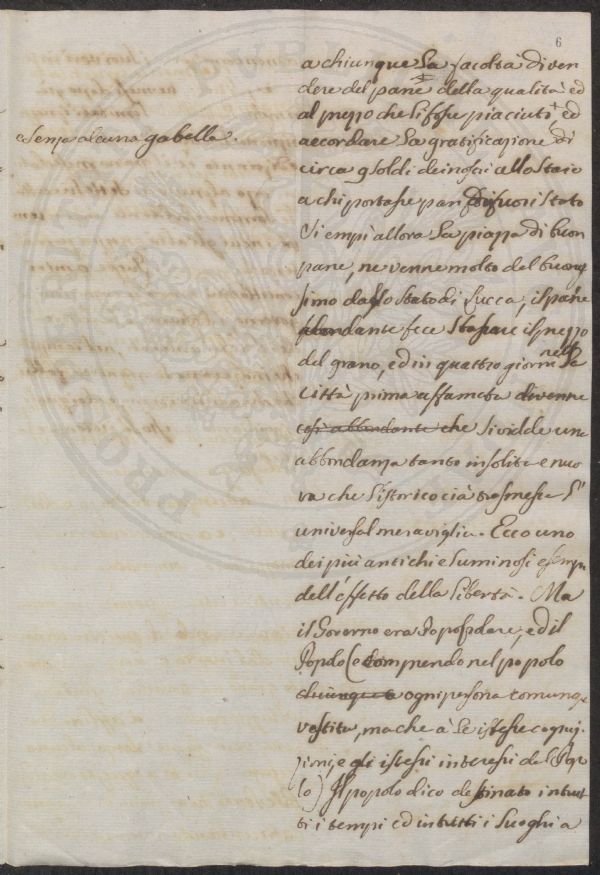 6
a chiunque la facoltà di ven
dere del pane della qualità ed
al prezzo che li fosse piaciuti, ed
e senza alcuna gabella.
accordare la gratificazione di
circa 9 soldi dei nostri allo staio
a chi portasse pan di fuori stato
Si empì allora la piazza di buon
pane, ne venne molto del buonis
simo dallo stato di Lucca, il pane
abondante fece sbassare il prezzo
del grano, ed in quattro giorni nella
Città prima affamata divenne
così abbondante che si vidde una
abbondanza tanto insolita e nuo
va che l'istorico cià trasmesse l'
universal meraviglia. Ecco uno
dei più antichi e luminosi esempi
dell'effetto della libertà. Ma
il Governo era Popolare, ed il
Popolo (e comprendo nel popolo
chiunque ogni persona comunq
vestita, ma che à le istesse cogni-
zioni, e gli istessi interessi del Popo
lo) Il popolo dico destinato in tut
ti i tempi ed in tutti i luoghi a
PUBLIC
PROSPERITATI